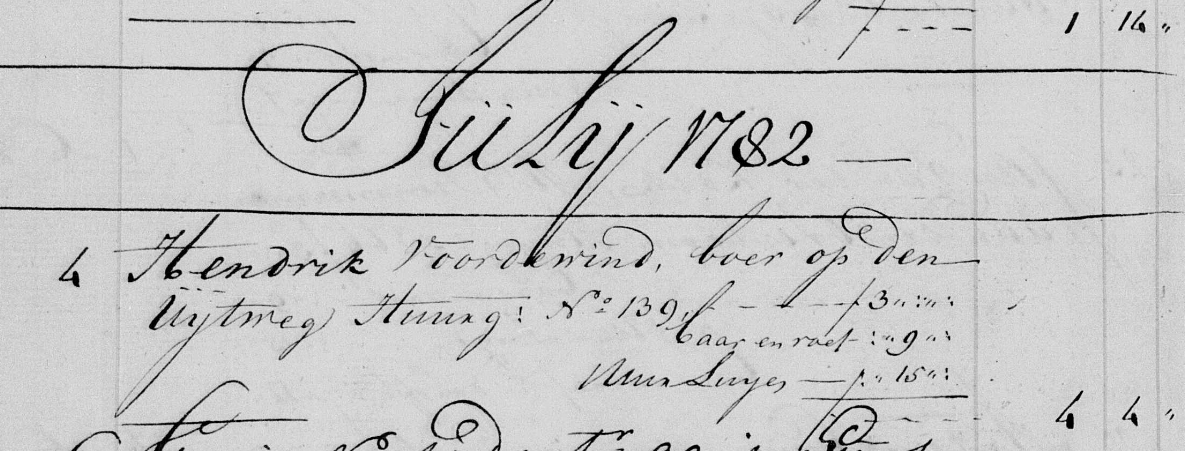 1 16 "
Jülÿ 1782 —
4 Hendrik Voordewind, boer op den
Uÿtweg Huurg: N:o 139, — — f 3 " : " :
baar en roef : " 9 " :
Uuur Luyes — f " 15 " :
4 4 "